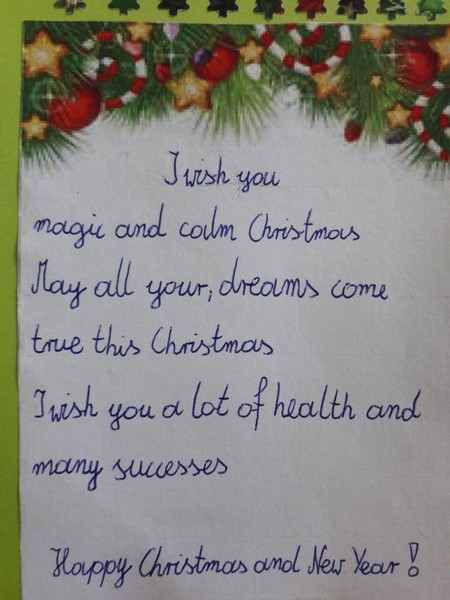 I wish you
magic and calm Christmas
May all your, dreams come
true this Christmas
I wish you a lot of health and
many successes
Happy Christmas and New Year!